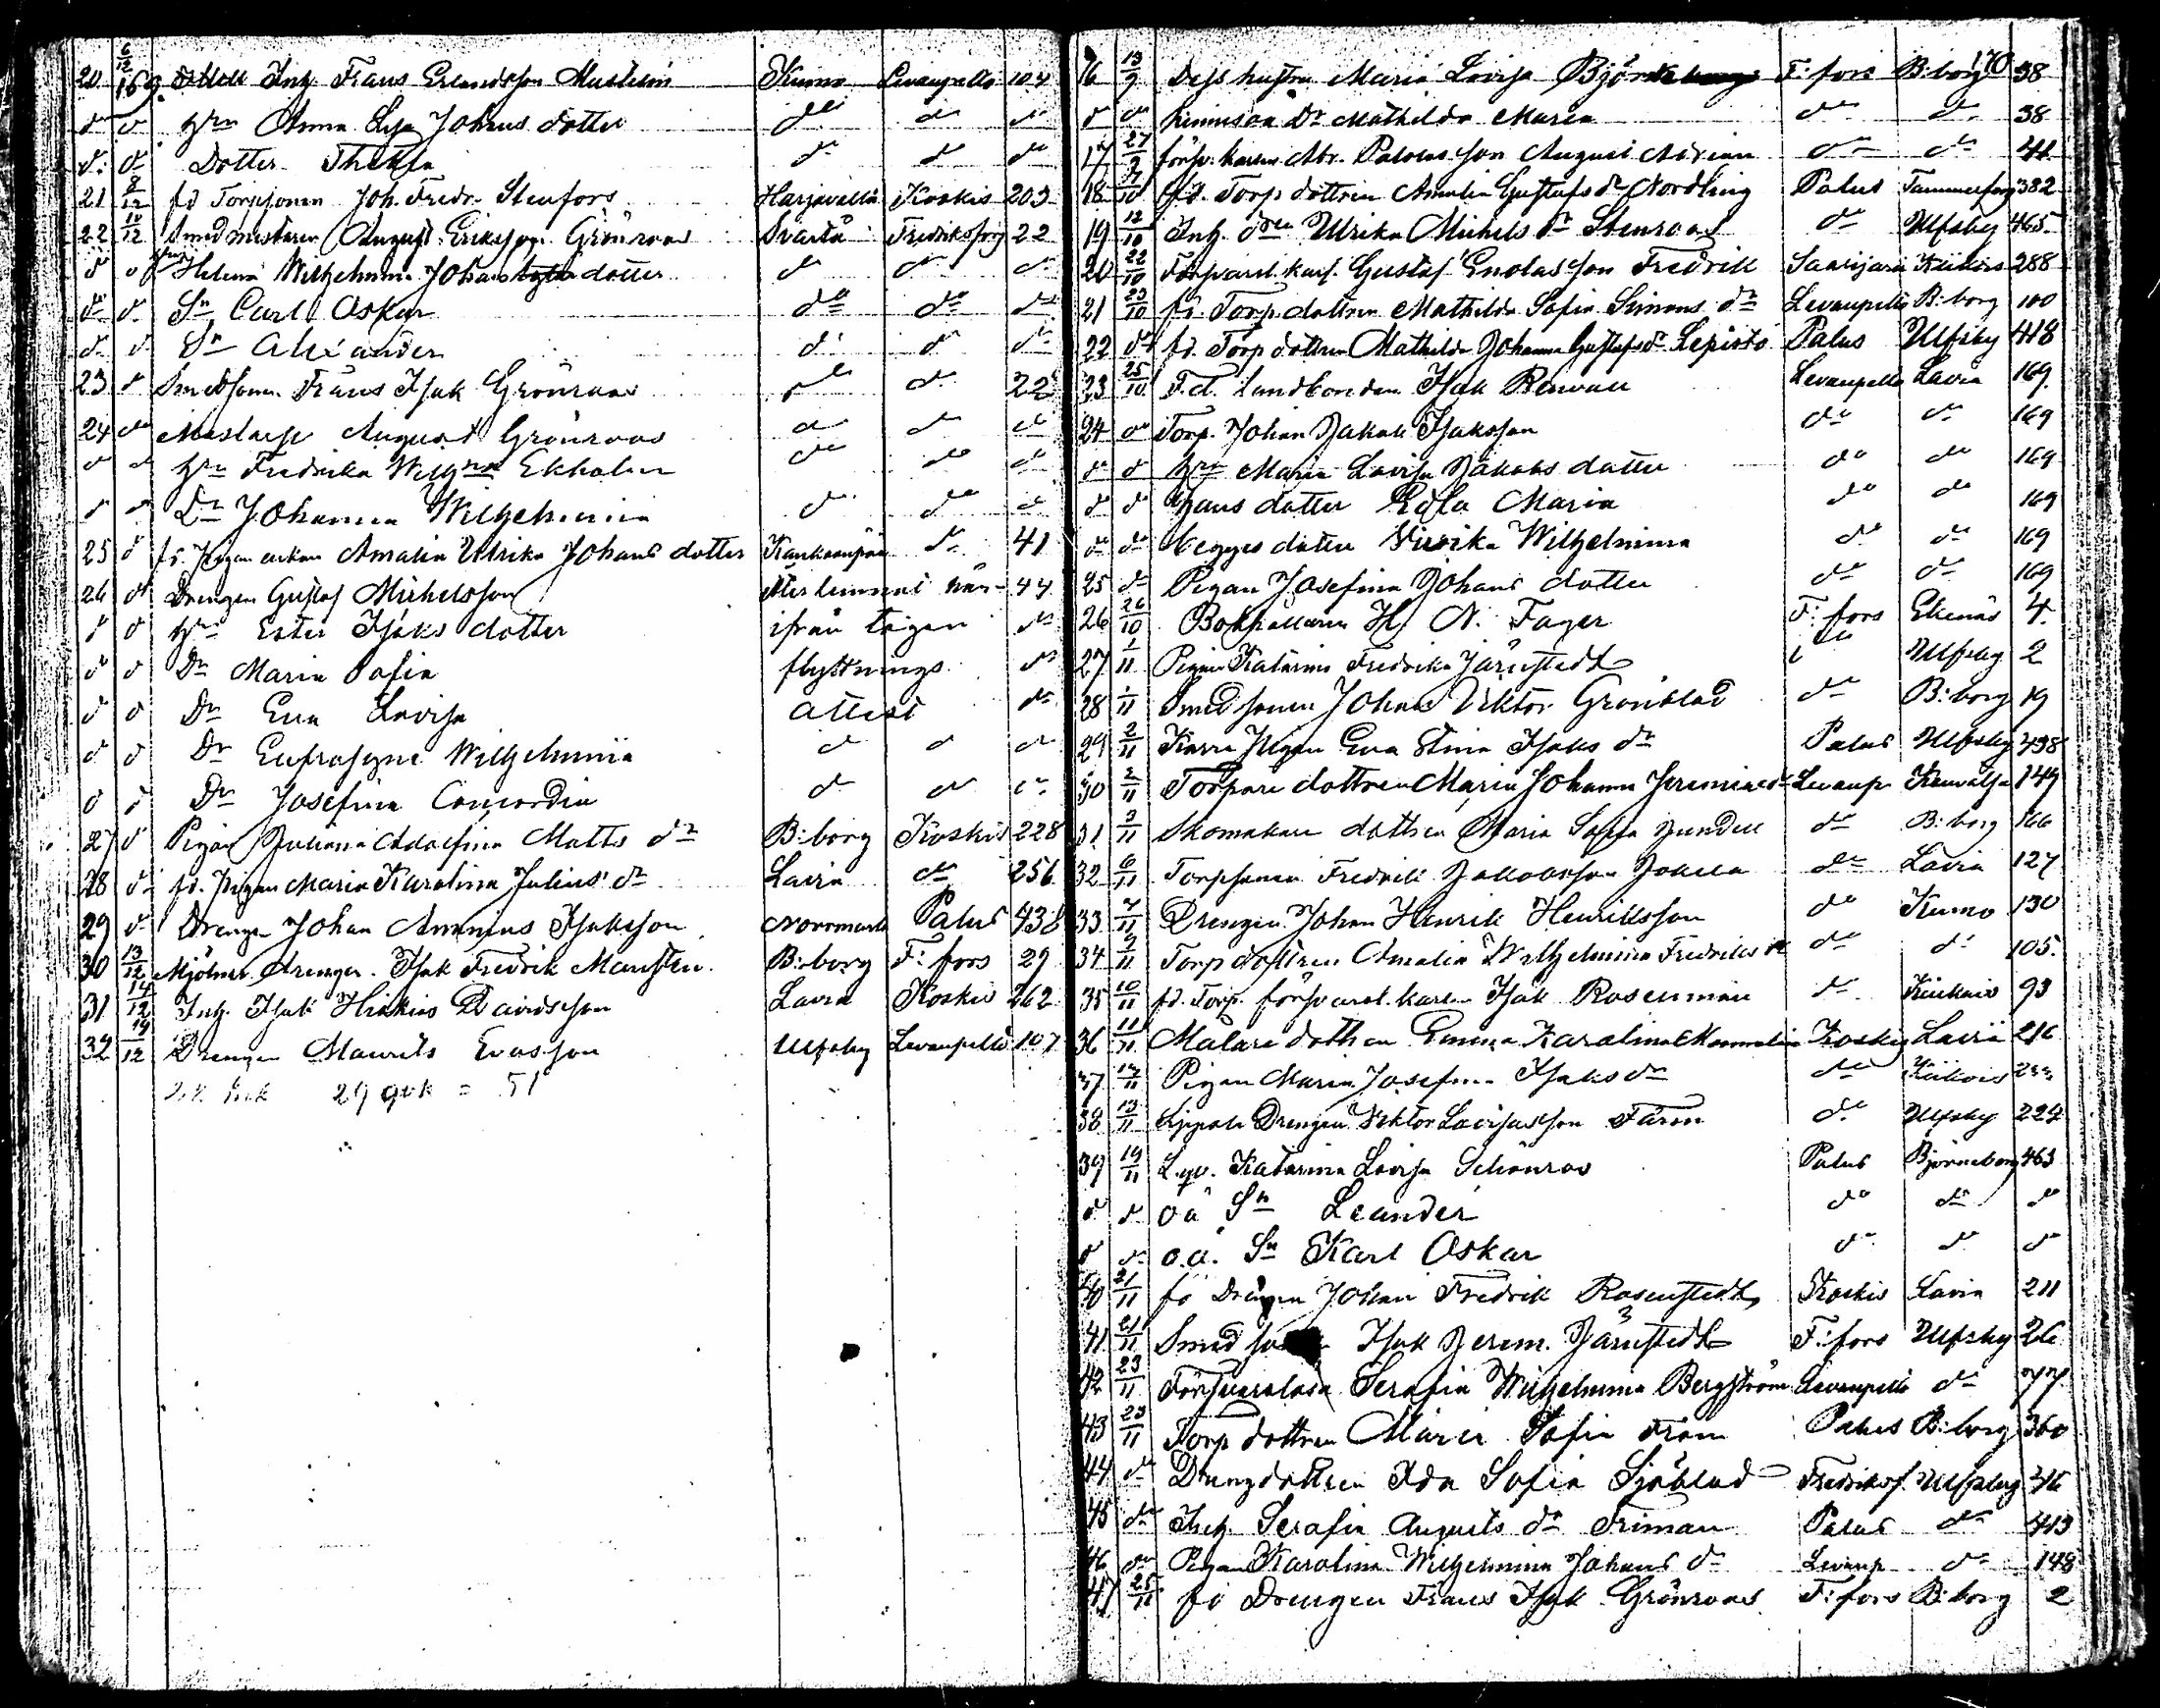 20 6/12 169. Inh. Frans Erlandsson Kumo Levanpelto 104
d:o d:o H:n Anna Lisa Johans dotter d:o d:o d:o
d:o d:o Dotter Thekla d:o d:o d:o
21 8/12 fd Torpsonen Joh. Fredr. Stenfors Harjavalla Koskis 203
22 10/12 Smedmästaren August Eriksson Grönroos Svartå Fredriksforg 22
d:o d:o Helena Wilhelmina Johans dotter d:o d:o d:o
d:o d:o S:n Carl Oskar d:o d:o d:o
d:o d:o S:n Alexander d:o d:o d:o
23 d:o Smedsonen Frans Isak Grönroos d:o d:o 22
24 d:o August Grönroos d:o d:o d:o
d:o d:o H:n Fredrika Wilh:na Ekholm d:o d:o d:o
d:o d:o D:r Johanna Wilhelmina d:o d:o d:o
25 d:o fd. Pigan enkan Amalia Ulrika Johans dotter Kankaanpää d:o 41
26 d:o Drengen Gustaf Michelsson Återlemnat här 44
d:o d:o H:n Ester Isaks dotter ifrån tagen d:o
d:o d:o D:r Maria Sofia flyttnings d:o
d:o d:o D:r Eva Lovisa attest d:o
d:o d:o D:r Eufrosyne Wilhelmina d:o d:o d:o
d:o d:o D:r Josefina Concordia d:o d:o d:o
27 d:o Pigan Juliana Adolfina Matts d:r B:borg Koskis 228
28 d:o fd. Pigan Maria Karolina Julius d:r Lavia d:o 256
29 d:o Drengen Johan Ananias Isaksson Norrmark Palus 438
30 13/12 Mjölnar drengen Isak Fredrik Marsten B:borg F:fors 29
31 14/12 Inh. Isak Hiskias Davidsson Lavia Koskis 262
32 19/12 Drengen Maurits Evasson Ulfsby Levanpelto 107
29 qvk = 51
16 13/9 Dess hustru Maria Lovisa F:fors B:borg 170 38
d:o d:o hennes oä D:r Mathilda Maria d:o d:o 38
17 27/9 försv. karlen Abr. August Adrian d:o d:o 41
18 7/10 fd. Torp dottren Amalia Gustafs d:r Nordling Palus Tammerfors 382
19 12/10 Inh. Ulrika Michels d:r Stenroos d:o Ulfsby 465
20 22/10 Försvarsl. karl. Gustaf Enolas son Fredrik Saarijärvi Kiikois 288
21 23/10 fd. Torp. dottren Mathilda Sofia Simons d:r Levanpelto B:borg 100
22 d:o fd. Torp dottren Mathilda Johanna Gustafs d:r Lepistö Palus Ulfsby 418
23 25/10 F.d. Landbonden Isak Levanpelto Lavia 169
24 d:o Torp. Johan Jakob Isaksson d:o d:o 169
d:o d:o H:n Maria Lovisa Jakobs dotter d:o d:o 169
d:o d:o Hans dotter Edla Maria d:o d:o 169
d:o d:o begges dotter Wilhelmina d:o d:o 169
25 d:o Pigan Josefina Johans dotter d:o d:o 169
26 26/10 Bokhållaren H. N. Fager F:fors Ekenäs 4
27 1/11 Pigan Katarina Fredrika Järnstedt d:o Ulfsby 2
28 1/11 Smedsonen Johan Viktor Grönblad d:o B:borg 19
29 2/11 Pigan Eva Stina Isaks d:r Palus Ulfsby 438
30 2/11 Torpare dottren Maria Johanna Jeremias d:r Levanp. 149
31 3/11 Skomakare dottren Maria Sofia d:o B:borg 166
32 6/11 Torpsonen Fredrik Jakobsson d:o Lavia 127
33 7/11 Drengen Johan Henrik Henriksson d:o Kumo 130
34 9/11 Torp dottren Amalia Wilhelmina Fredriks d:r d:o d:o 105
35 10/11 fd. Torp. försvarsl. karlen Isak Rosenman d:o Kiikois 93
36 11/11 Målare dottren Emma Karolina Koskis Lavia 216
37 12/11 Pigan Maria Josefina Isaks d:r d:o Kiikois
38 13/11 Drengen Viktor d:o Ulfsby 224
39 19/11 L.qv. Katarina Lovisa Schönroos Palus Björneborg 463
d:o d:o oä S:n Leander d:o d:o d:o
d:o d:o o.ä. S:n Karl Oskar d:o d:o d:o
40 21/11 fd Drengen Johan Fredrik Rosenstedt Koskis Lavia 211
41 21/11 Smed Isak Jerem. Järnstedt F:fors Ulfsby 26
42 23/11 Försvarslösa Serafia Wilhelmina Bergström Levanpelto d:o 77
43 23/11 Torp dottren Maria Sofia Fram Palus B:borg 360
44 d:o Drengdottren Ida Sofia Sjöblad Fredriksf. Ulfsby 46
45 d:o Inh. Serafia Augusts d:r Friman Palus d:o 413
46 d:o Pigan Karolina Wilhelmina Johans d:r Levanp. d:o 148
47 25/11 fd Drengen Frans Isak Grönroos F:fors B:borg 2